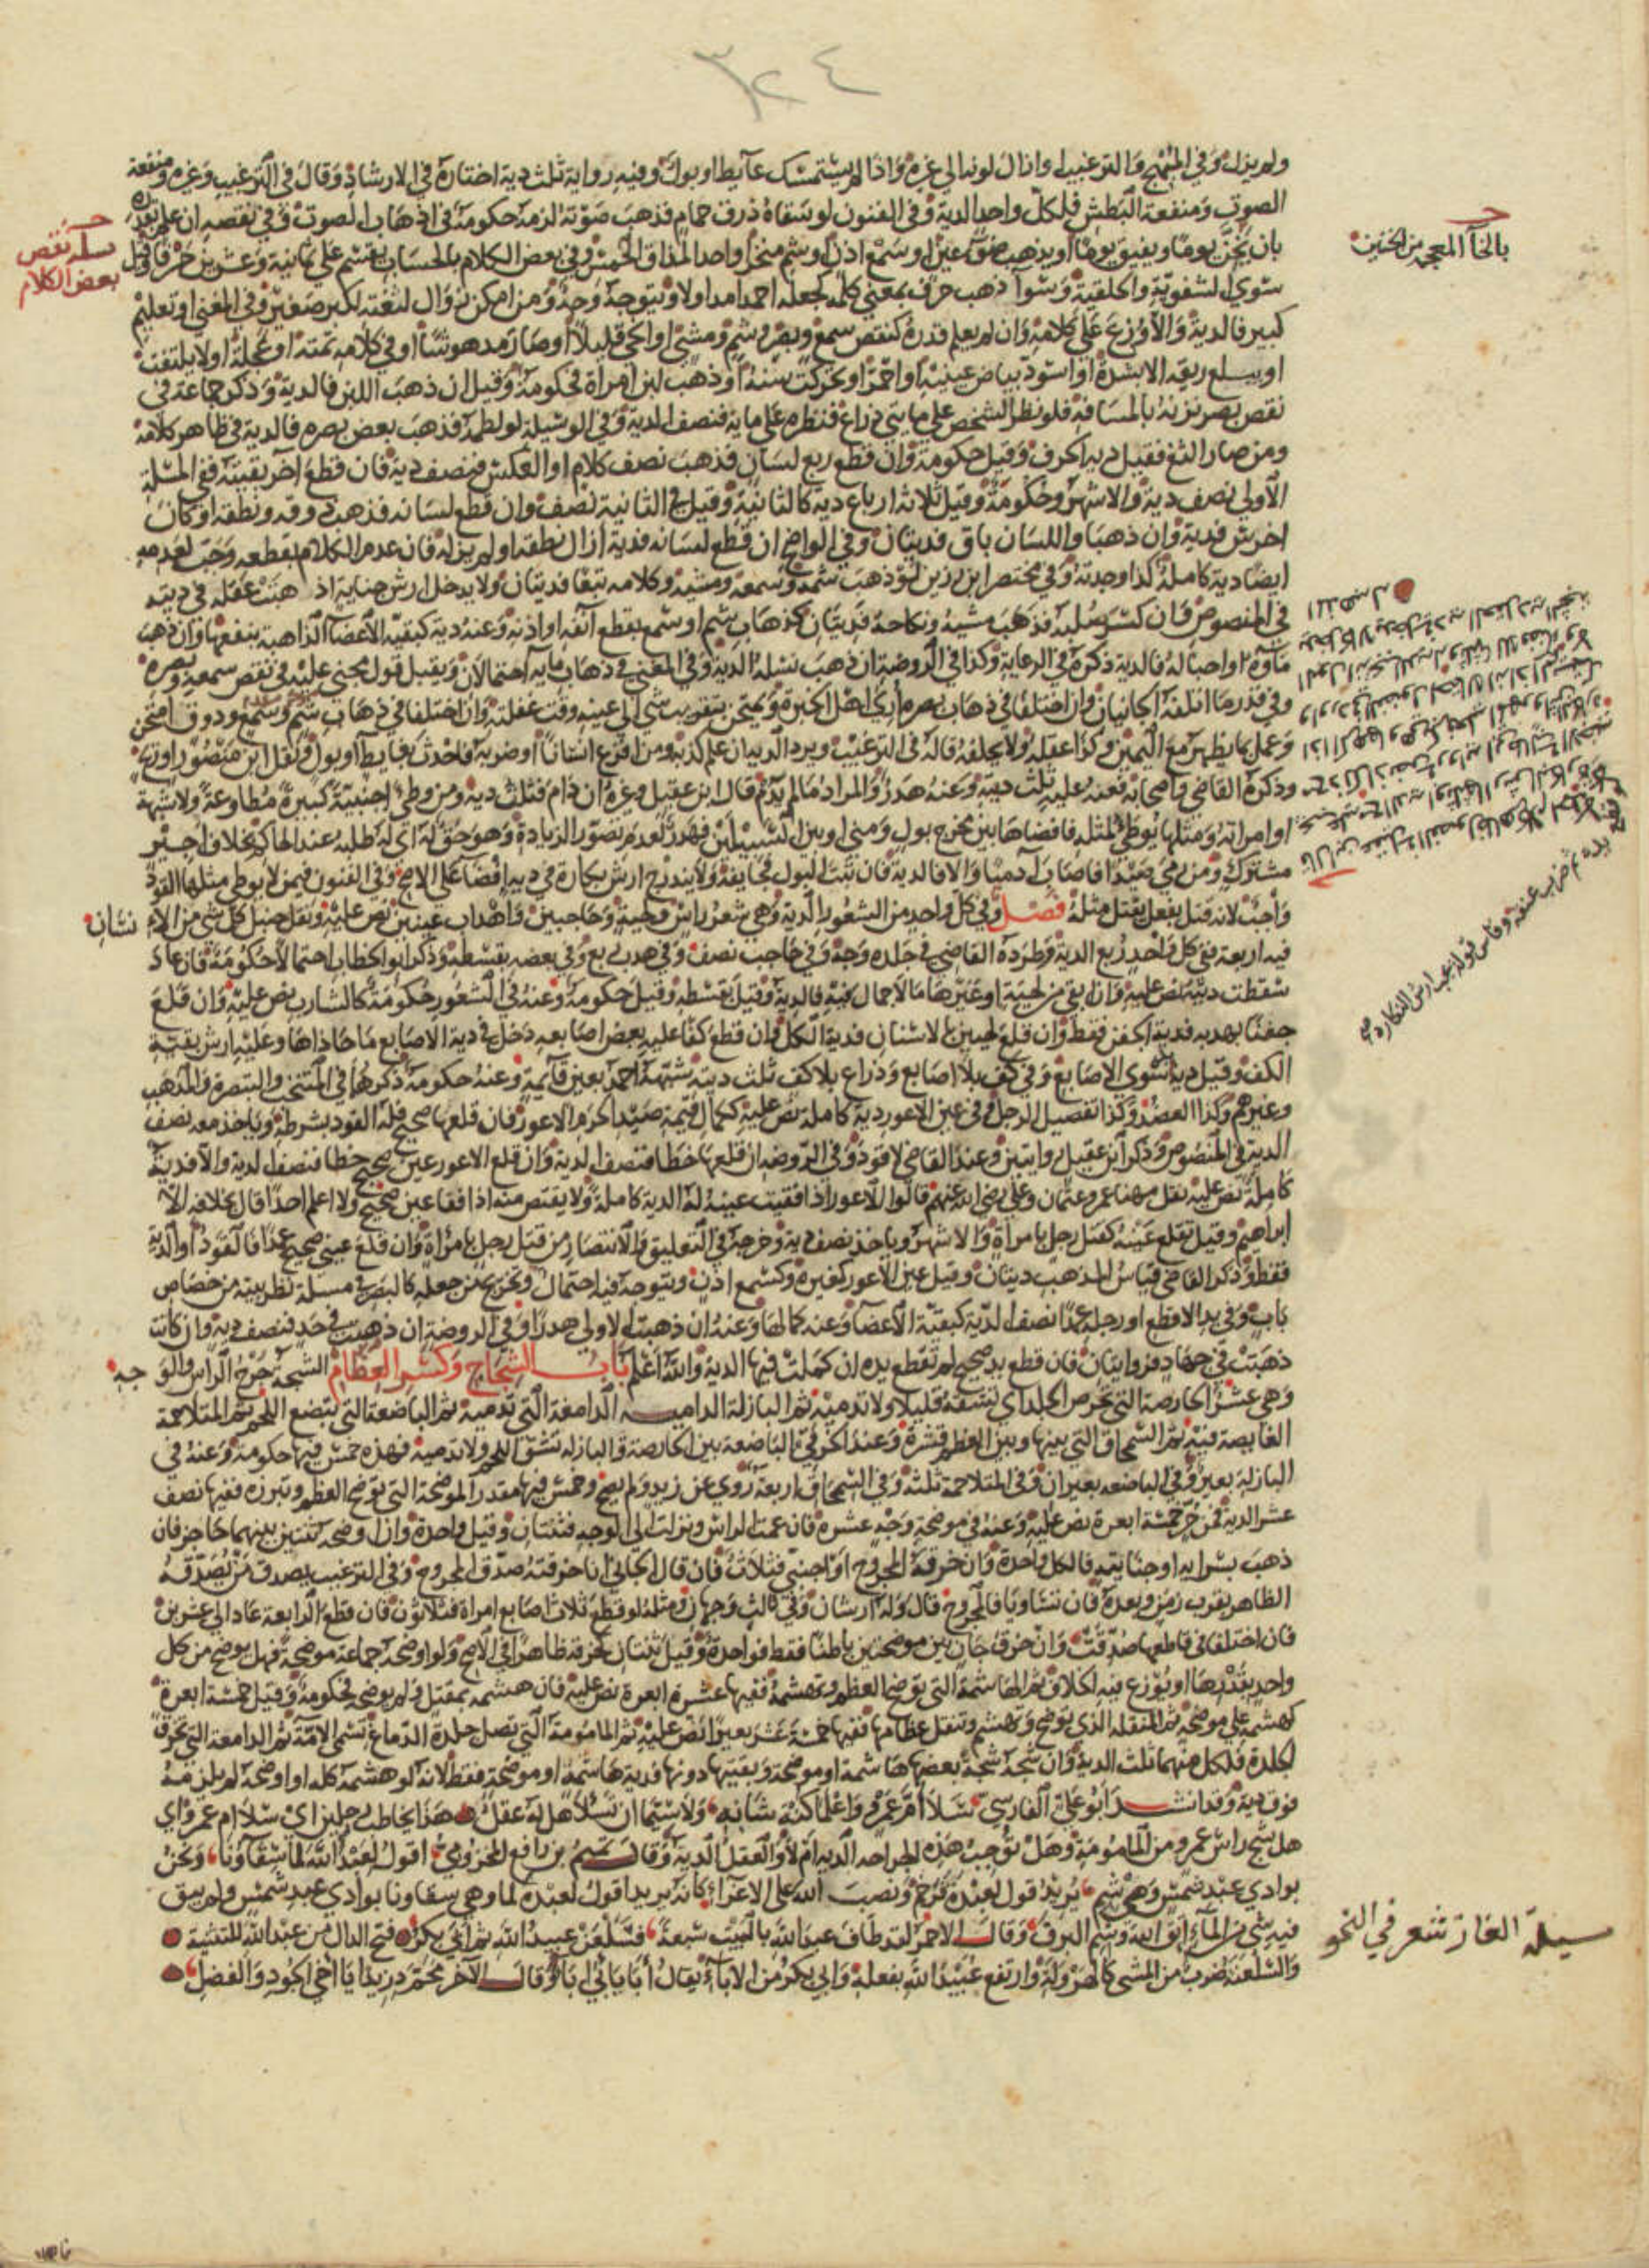 ٣٢٤
ولم يزل وفي المبهج والترغيب او ازال لونها الى غيره واذا لم يستمسك غائط او بول وفيه رواية ثلث دية اختاره في الارشاد وقال في الترغيب وغيره ومنفعة
الصوت ومنفعة البطش فلكل واحد الدية وفي الفنون لو سقاه ذرق حمام فذهب صوته لزمه حكومة في اذهاب الصوت وفي نقصه ان علم بقدره
بان يجن يوما ويفيق يوما او يذهب ضوء عين او سمع اذن او شم منخر او احد المذاق الخمس وفي بعض الكلام بالحساب يقسم على ثمانية وعشرين حرفا وقيل
سوى الشفوية والحلقية وسواء ذهب حرف بمعنى كلمة كجعله احمد امد اولا ويتوجه وجه ومن امكن زوال لثغته لكبر صغير وفي المغني او تعليم
كبير فالدية والا وزع على كلامه وان لم يعلم قدره كنقص سمع وبصر وشم ومشي او انحنى قليلا او صار مدهوشا او في كلامه تمتمة او عجلة اولا يلتفت
او يبلع ريقه الا بشدة او اسود بياض عينيه او احمر او تحركت سنه او ذهب لبن امراة فحكومة وقيل ان ذهب اللبن فالدية وذكر جماعة في
نقص بصر نزنه بالمسافة فلو نظر الشخص على مايتي ذراع فنظره على ماية فنصف الدية وفي الوسيلة لو لطمه فذهب بعض بصره فالدية في ظاهر كلامه
ومن صار الثغ فقيل دية الحرف وقيل حكومة وان قطع ربع لسان فذهب نصف كلام او العكس فنصف دية فان قطع اخر بقيته ففي المسلة
الاولى نصف دية والاشهر وحكومة وقيل ثلاثة ارباع دية كالثانية وقيل في الثانية نصف وان قطع لسانه فذهب ذوقه ونطقه او كان
اخرس فدية وان ذهبا واللسان باق فديتان وفي الواضح ان قطع لسانه فدية ازال نطقه او لم يزله فان عدم الكلام بقطعه وجب لعدمه
ايضا دية كاملة كذا وجدته وفي مختصر ابن رزين لو ذهب شمه وسمعه ومشيه وكلامه تبعا فديتان ولا يدخل ارش جناية اذهبت عقله في ديته
في المنصوص وان كسر صلبه فذهب مشيه ونكاحه فديتان كذهاب شم او سمع بقطع انفه او اذنه وعنه دية كبقية الاعضا الذاهبة بنفعها وان ذهب
ماؤه او احباله فالدية ذكره في الرعاية وكذا في الروضة ان ذهب نسله الدية وفي المغني في ذهاب مايه احتمالان ويقبل قول مجني عليه في نقص سمعه وبصره
وفي قدر ما اتلفه الجانيان وان اختلفا في ذهاب بصره اري اهل الخبرة ويمتحن بتقريب شي الى عينيه وقت غفلته وان اختلفا في ذهاب شم وسمع وذوق امتحن
وعمل بما يظهر مع اليمين وكذا عقله ولا يحلفه قاله في الترغيب ويرد الدية ان علم كذبه ومن افزع انسانا او ضربه فاحدث بغايط او بول ونقل ابن منصور او ريح
وذكره القاضي واصحابه فعنه عليه ثلث ديته وعنه هدر والمراد مالم يدم قال ابن عقيل وغيره ان دام فثلث دية ومن وطئ اجنبية كبيرة مطاوعة ولا شبهة
او امراته ومثلها يوطا لمثله فافضاها بين مخرج بول ومني او بين السبيلين فهدر لعدم تصور الزيادة وهو حق له اي له طلبه عند الحاكم بخلاف اجير
مشترك ومن رمى صيدا فاصاب آدميا والا فالدية فان ثبت البول فجايفة ولا يندرج ارش بكارة في دية افضا على الاصح وفي الفنون فيمن لا يوطى مثلها القود
واجب لانه قتل بفعل يقتل مثله فصل وفي كل واحد من الشعور الدية وهي شعر راس ولحية وحاجبين واهداب عينين نص عليه ونقل حنبل كل شي من الانسان
فيه اربعة ففي كل واحد ربع الدية وطرده القاضي في جلده وجه وفي حاجب نصف وفي هدب ربع وفي بعضه بقسطه وذكر ابو الخطاب احتمالا حكومة فان عاد
سقطت ديته نص عليه وان ابقى من لحيته او غيرها مالا جمال فيه فالدية وقيل بقسطه وقيل حكومة وعنه في الشعور حكومة كالشارب نص عليه وان قلع
جفنا بهدبه فدية الجفن فقط وان قلع لحيين بالاسنان فدية الكل وان قطع كفا عليه بعض اصابعه دخل في دية الاصابع ما حاذاها وعليه ارش بقية
الكف وقيل دية سوى الاصابع وفي كف بلا اصابع وذراع بلا كف ثلث ديته شبهه احمد بعين قايمة وعنه حكومة ذكرهما في المنتخب والتبصرة والمذهب
وغيرهم وكذا العضد وكذا تفصيل الرجل وفي عين الاعور دية كاملة نص عليه ككمال قيمة صيد الحرم الاعور فان قلعها صحيح فله القود بشرطه وياخذ معه نصف
الدية في المنصوص وذكر ابن عقيل روايتين وعند القاضي لا قود وفي الروضة ان قلعها خطا فنصف الدية وان قلع الاعور عين صحيح خطا فنصف الدية والا فدية
كاملة نص عليه نقل مهنا عمر وعثمان وعلي رضي الله عنهم قالوا الاعور اذا فقيت عينه له الدية كاملة ولا يقتص منه اذا فقا عين صحيح ولا اعلم احدا قال بخلافه الا
ابراهيم وقيل تقلع عينه كقتل رجل بامراة والاشهر وياخذ نصف دية وخرجه في التعليق والانتصار من قتل رجل بامراة وان قلع عيني صحيح عمدا فالقود او الدية
فقط وذكر القاضي قياس المذهب ديتان وقيل عين الاعور كغيره وكسمع اذن ويتوجه فيه احتمال وتخريج من جعله كالبصر في مسلة نظر بيته من خصاص
باب وفي يد الاقطع او رجله عمدا نصف الدية كبقية الاعضا وعنه كمالها وعنه ان ذهبت الاولى هدرا وفي الروضة ان ذهبت في حد فنصف دية وان كانت
ذهبت في جهاد فروايتان فان قطع يد صحيح لم تقطع يده ان كملت فيها الدية والله اعلم باب الشجاج وكسر العظام الشجة جرح الراس والوجه
وهي عشر الحارصة التي تحرص الجلد اي تشقه قليلا ولا تدميه ثم البازلة الدامية الدامعة التي تدميه ثم الباضعة التي تبضع اللحم ثم المتلاحمة
الغايصة فيه ثم السمحاق التي بينها وبين العظم قشرة وعند الخرقي الباضعة بين الحارصة والبازلة تشق اللحم ولا تدميه فهذه خمس فيها حكومة وعنه في
البازلة بعير وفي الباضعة بعيران وفي المتلاحمة ثلثة وفي السمحاق اربعة روي عن زيد ولم يصح وخمس فيها مقدر الموضحة التي توضح العظم وتبرزه ففيها نصف
عشر الدية فمن حر خمسة ابعرة نص عليه وعنه في موضحة وجه عشرة فان عمت الراس ونزلت الى الوجه فثنتان وقيل واحدة وان اوضحه ثنتين بينهما حاجز فان
ذهب بسرايه او جنايته فالكل واحدة وان خرقه المجروح او اجنبي فثلاث فان قال الجاني انا خرقته صدق المجروح وفي الترغيب يصدق من يصدقه
الظاهر بقرب زمن وبعده فان تساويا فالمجروح قال وله ارشان وفي ثالث وجهان ومثله لو قطع ثلاث اصابع امراة فثلاثون فان قطع الرابعة عاد الى عشرين
فان اختلفا في قاطعها صدقت وان خرق جان بين موضحتين باطنا فقط فواحدة وقيل ثنتان كخرقه ظاهرا في الاصح ولو اوضحه جماعة موضحة فهل يوضح من كل
واحد بقدرها او يوزع فيه الخلاف ثم الهاشمة التي توضح العظم وتهشمه ففيها عشرة ابعرة نص عليه فان هشمه بمثقل ولم يوضحه فحكومة وقيل خمسة ابعرة
كهشمه على موضحة ثم المنقلة الذي يوضح ويهشم وتنقل عظامها ففيها خمسة عشر بعيرا نص عليه ثم المامومة التي تصل جلدة الدماغ تسمى الامة ثم الدامغة التي تخرق
الجلدة فلكل منهما ثلث الدية وان شجه شجة بعضها هاشمة او موضحة وبقيتها دونها فدية هاشمة او موضحة فقط لانه لو هشمه كله او اوضحه لم يلزمه
فوق دية وقد انشد ابو علي الفارسي سلا ام عمرو واعلما كنه شانه ولا سيما ان تسلا هل له عقل هذا يخاطب رجلين اي سلا ام عمرو اي
هل شج راس عمرو من المامومة وهل توجب هذه الجراحة الدية ام لا والعقل الدية وقال تميم بن رافع المخزومي اقول لعبد الله لما سقاونا ونحن
بوادي عبد شمس وهي شم يريد قول لعبدة فرخم ونصب الله على الاغراء كانه يريد اقول لعبدة لما وهي سقاونا بوادي عبد شمس ولم يبق
فيه شي من الماء اتق الله وشم البرق وقال الاخر لقد طاف عبدا الله بالبيت سبعة فسلعن عبيدا الله ثم ابي بكر فتح الدال من عبد الله للتثنية
والسلعنة ضرب من المشي كالهرولة وارتفع عبيدا الله بفعله وابي بكر من الاباء يقال ابا يابى اباؤ وقال الاخر محمد زيدا يا اخي الجود والفضل
بالخاء المعجمة من الخنين
مسلة نقص
بعض الكلام
مسيلة الغاز شعر في النحو